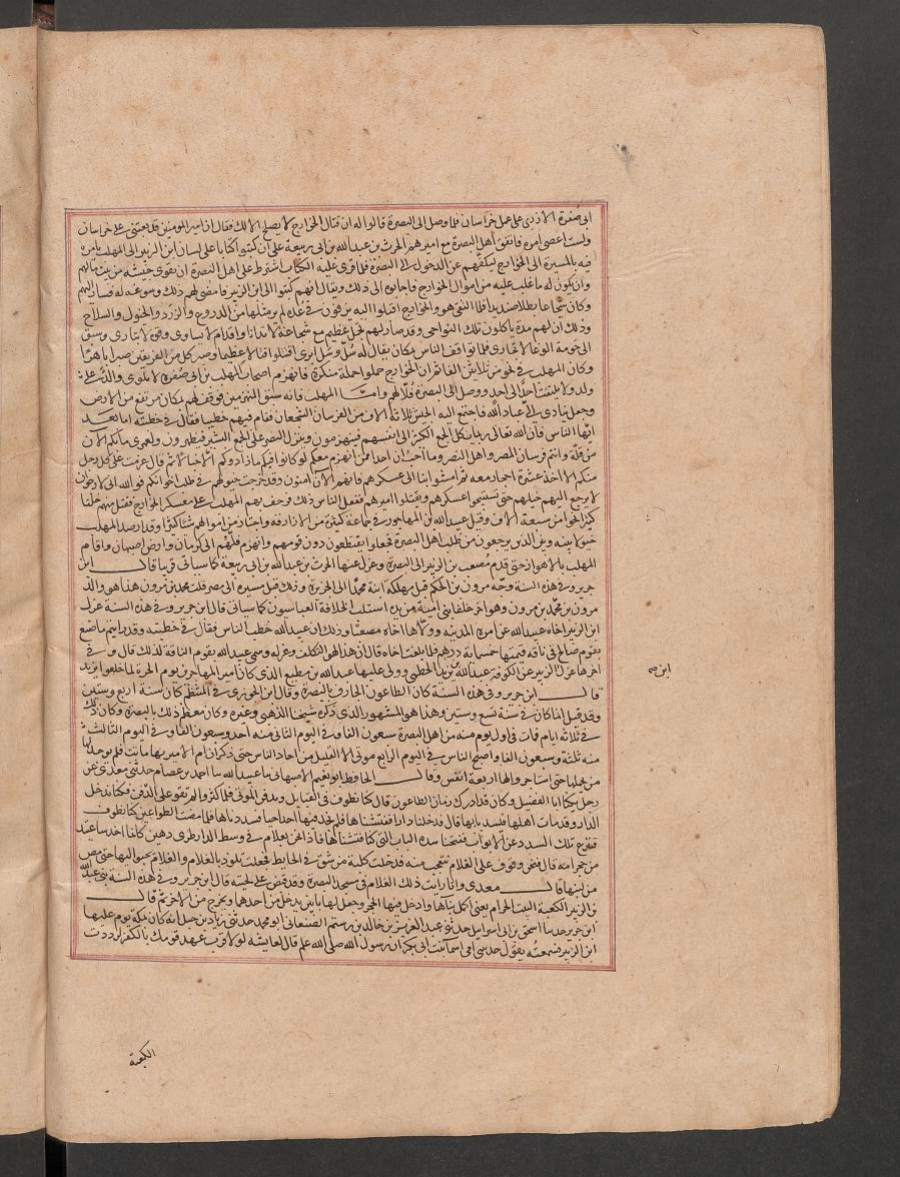 ابى صفرة الازدى على عمل خراسان فلما وصل الى البصرة قالوا له ان قتال الخوارج لا يصلح الا لك فقال ان امير المومنين قد بعثنى على خراسان
ولست اعصى امره فاتفق أهل البصرة مع اميرهم الحرث بن عبد الله بن ابى ربيعة على ان كتبوا كتابا على لسان ابن الزبير الى المهلب يامره
فيه بالمسيرة الى الخوارج ليكفهم عن الدخول الى البصرة فلما قرى عليه الكتاب اشترط على اهل البصرة ان يقوى جيشه من بيت مالهم
وان يكون له ما غلب عليه من اموال الخوارج فاجابوه الى ذلك ويقال انهم كتبوا الى ابن الزبير فامضى لهم ذلك وسوغه له فسار اليهم
وكان شجاعا بطلا صنديدا فلما التقى هو والخوارج اقبلوا اليه يزفون فى عدد لم ير مثلها من الدروع والزرد والخيول والسلاح
وذلك ان لهم مدة ياكلون تلك النواحى وقد صار لهم تجمل عظيم مع شجاعة لا تدانا واقدام لا يساوى وقوة لا تبارى وسبق
الى حومة الوغا لا تجارى فلما تواقف الناس بمكان يقال له سل وسل ابرى اقتتلوا قتالا عظيما وصبر كل من الفريقين صبرا باهرا
وكان المهلب فى نحو من ثلاثين الفا ثم ان الخوارج حملوا حملة منكرة فانهزم اصحاب المهلب بن ابى صفرة لا يلوى والد على
ولد ولا يلتفت احد الى احد ووصل الى البصرة فلالهم واما المهلب فانه سبق المنهزمين فوقف لهم بمكان مرتفع من الارض
وجعل ينادى الى عباد الله فاجتمع اليه من الجيش ثلاثة الاف من الفرسان الشجعان فقام فيهم خطيبا فقال فى خطبته اما بعد
ايها الناس فان الله تعالى ربما يكل الجمع الكثير الى انفسهم فينهزمون وينزل النصر على الجمع اليسير فيظهرون ولعمرى ما بكم الان
من قلة وانتم فرسان المصر واهل النصر وما احب ان احدا ممن انهزم معكم لو كانوا فيكم ما زادوكم الا خبالا ثم قال عزمت على كل رجل
منكم الا اخذ عشرة احجار معه ثم امشوا بنا الى عسكرهم فانهم الان امنون وقد خرجت خيولهم فى طلب اخوانكم فوالله انى لارجو ان
لا يرجع اليهم خيلهم حتى تستبيحى عسكرهم ويقتلوا اميرهم ففعل الناس ذلك فزحف بهم المهلب على معسكر الخوارج فقتل منهم خلقا
كثيرا نحوا من سبعة الاف وقتل عبيد الله بن الماحور فى جماعة كثيرة من الازارقة واحتاز من اموالهم شيئا كثيرا وقد ارصد المهلب
خيولا بينه وبين الذين يرجعون من طلب اهل البصرة فجعلوا يقتطعون دون قومهم وانهزم فلهم الى كرمان وارض اصبهان واقام
المهلب بالاهواز حتى قدم مصعب بن الزبير الى البصرة وعزل عنها الحرث بن عبد الله بن ابى ربيعة كما سياتى قريبا قال ابن
جرير وفى هذه السنة وجه مرون بن الحكم قبل مهلكه ابنه محمدا الى الجزيرة وذلك قبل مسيره الى مصر قلت محمد بن مرون هذا هو والد
مرون بن محمد بن مرون وهو اخر خلفا بنى امية ومن يده استلب الخلافة العباسيون كما سياتى قال ابن جرير وفى هذه السنة عزل
ابن الزبير اخاه عبيد الله عن امرة المدينة وولاها اخاه مصعبا وذلك ان عبيد الله خطب الناس فقال فى خطبته وقد رايتم ما صنع
بقوم صالح فى ناقة قيمتها خمسماية درهم فلما بلغت اخاه قال ان هذا لهو التكلف وعزله وسمى عبيد الله مقوم الناقة لذلك قال وفى
اخرها عزل ابن الزبير عن الكوفة عبد الله بن يزيد الخطمى وولى عليها عبد الله بن مطيع الذى كان امير المهاجرين يوم الحرة لما خلعوا يزيد
قال ابن جرير وفى هذه السنة كان الطاعون الجارف بالبصرة وقال ابن الجوزى فى المنتظم كان سنة اربع وستين
وقد قيل انما كان فى سنة تسع وستين وهذا هو المشهور الذى ذكره شيخنا الذهبى وغيره وكان معظم ذلك بالبصرة وكان ذلك
فى ثلاثة ايام فمات فى اول يوم منه من اهل البصرة سبعون الفا وفى اليوم الثانى منه احد وسبعون الفا وفى اليوم الثالث
منه ثلثة وسبعون الفا واصبح الناس فى اليوم الرابع موتى الا القليل من احاد الناس حتى ذكر ان ام الامير بها ماتت فلم يوجد لها
من يحملها حتى استاجروا لها اربعة انفس وقال الحافظ ابو نعيم الاصبهانى ثنا عبيد الله ثنا احمد بن عصام حدثنى معدى عن
رجل يكنا ابا الفضيل وكان قد ادرك زمان الطاعون قال كنا نطوف فى القبايل وندفن الموتى فلما كثروا لم نقو على الدفن فكنا ندخل
الدار وقد مات اهلها فنسد بابها قال فدخلنا دارا ففتشناها فلم نجد فيها احدا حيا فسددناها فلما مضت الطواعين كنا نطوف
فننزع تلك السدد عن الابواب ففتحنا سدة الباب التى كنا فتشناها فاذا نحن بغلام فى وسط الدار طرى دهين كانما اخذ ساعتيذ
من حجر امه قال فنحن وقوف على الغلام نتعجب منه فدخلت كلبة من شق فى الحايط فجعلت تلوذ بالغلام والغلام يحبو اليها حتى مص
من لبنها قال معدى وانا رايت ذلك الغلام فى مسجد البصرة وقد قبض على لحيته قال ابن جرير وفى هذه السنة بنى عبد الله
بن الزبير الكعبة البيت الحرام يعنى اكمل بناها وادخل فيها الحجر وجعل لها بابين يدخل من احدهما ويخرج من الاخر ثم قال
ابن جرير حدثنا اسحق بن ابى اسرايل حدثنى عبد العزيز بن خالد بن رستم الصنعانى ابو محمد حدثنى زياد بن جيل انه كان بمكة يوم عليها
ابن الزبير فسمعته يقول حدثتنى امى اسما بنت ابى بكر ان رسول الله صلى الله علم قال لعايشة لولا قرب عهد قومك بالكفر لرددت
الكعبة